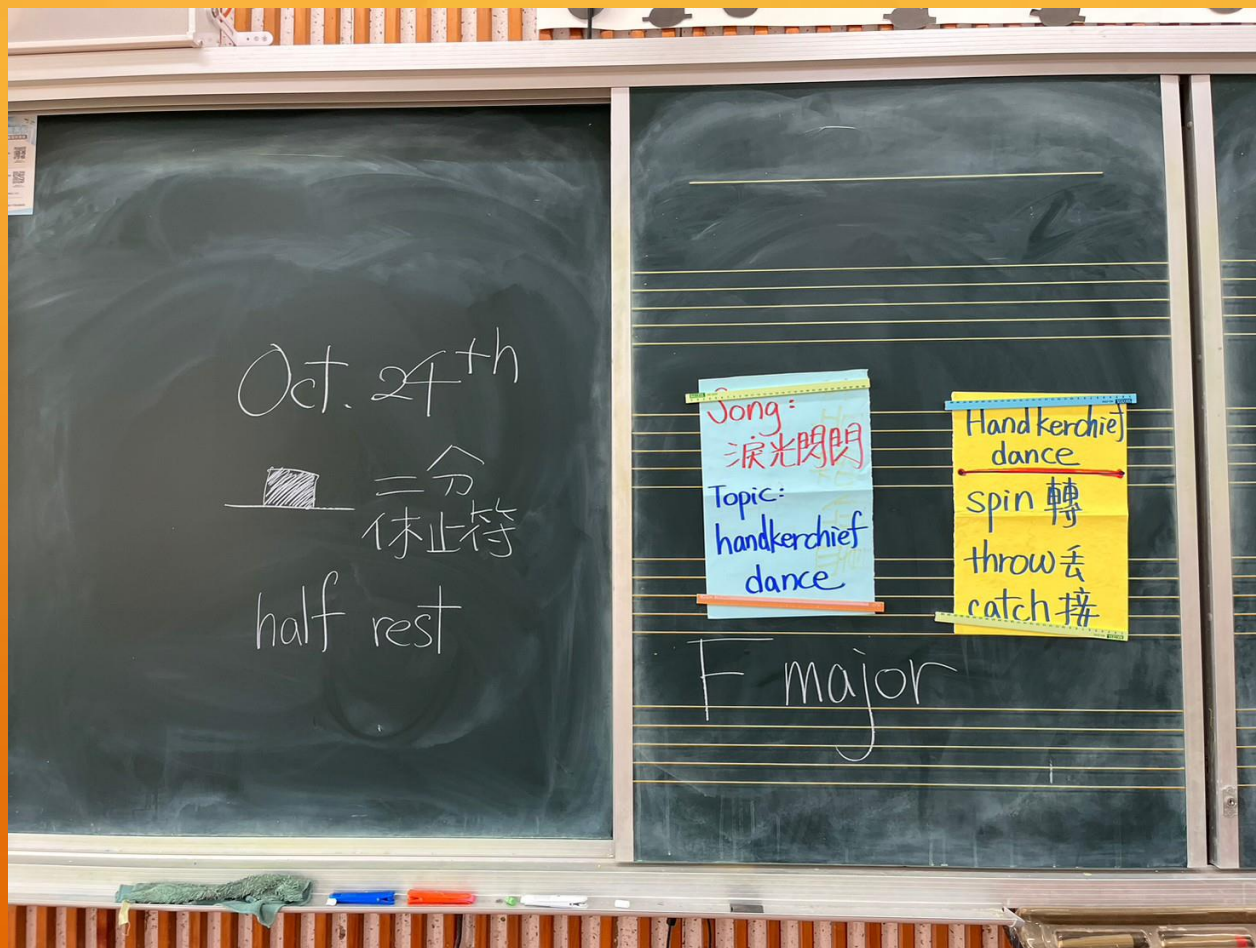 Oct. 24th
二分
休止符
half rest
Song:
淚光閃閃
Topic:
handkerchief
dance
Handkerchief
dance
spin 轉
throw 丟
catch 接
F major